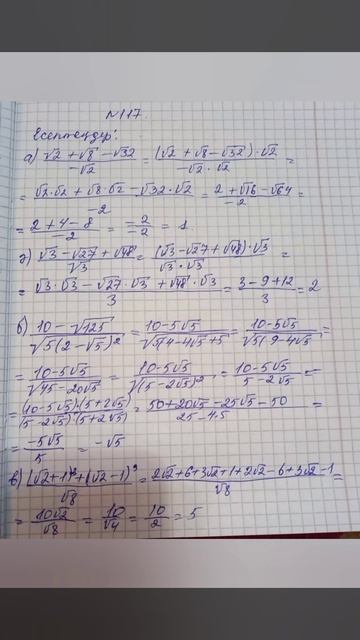 №117.
Есептеңдер:
а) (√2 + √8 - √32)/(-√2) = ((√2 + √8 - √32)·√2)/(-√2·√2) =
= (√2·√2 + √8·√2 - √32·√2)/(-2) = (2 + √16 - √64)/(-2) =
= (2 + 4 - 8)/2 = (-2)/(-2) = 1
ә) (√3 - √27 + √48)/√3 = ((√3 - √27 + √48)·√3)/(√3·√3) =
= (√3·√3 - √27·√3 + √48·√3)/3 = (3 - 9 + 12)/3 = 2
б) (10 - √125)/√(5(2 - √5)²) = (10 - 5√5)/√(5(4 - 4√5 + 5)) = (10 - 5√5)/√(5(9 - 4√5)) =
= (10 - 5√5)/√(45 - 20√5) = (10 - 5√5)/√((5 - 2√5)²) = (10 - 5√5)/(5 - 2√5) =
= ((10 - 5√5)(5 + 2√5))/((5 - 2√5)(5 + 2√5)) = (50 + 20√5 - 25√5 - 50)/(25 - 4·5) =
= (-5√5)/5 = -√5
в) ((√2 + 1)³ + (√2 - 1)³)/√8 = (2√2 + 6 + 3√2 + 1 + 2√2 - 6 + 3√2 - 1)/√8 =
= (10√2)/√8 = 10/√4 = 10/2 = 5